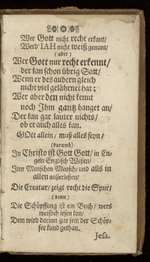 Wer Gott nicht recht erkant,
Werd' IAH nicht weiß genant,
(aber)
Wer Gott nur recht erkennt,
der kan schon übrig Satt,
Wenn er des andern gleich
nicht viel gelährnet hat;
Wer aber den nicht kennt
noch Jhm gantz hanget an,
Der kan gar lauter nichts,
ob er auch alles kan.
GOtt allein, muß alles seyn,
(darumb)
In Christo ist Gott Gott, in En-
geln Englisch
Jnn Menschen Mensch, und alls in
allen
Die Creatur, zeigt recht die Spur,
(denn)
Die Schöpffung ist ein Buch, wers
weißlich lesen kan,
Dem wird darinn gar fein der Schöp-
fer kund gethan.
Jesu.